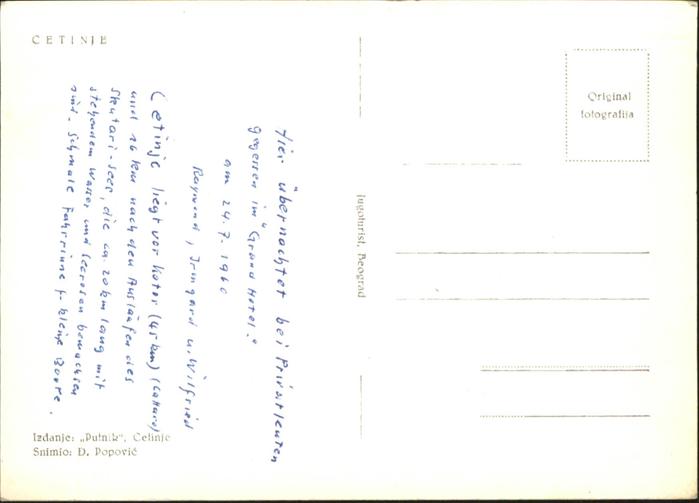 CETINJE
Hier übernachtet bei Privatleuten
gegessen im "Grand Hotel."
am 24.7.1960
Raymund, Irmgard u. Wilfried
Cetinje liegt vor Kotor (45 km) (Cattaro)
und 16 km nach den Ausläufen des
Skutari-Sees, die ca. 20 km lang mit
stehendem Wasser und Seerosen bewachsen
sind. Schmale Fahrrinne f. kleine Boote.
Izdanje: „Putnik“, Cetinje
Snimio: D. Popović
Jugoturist, Beograd
Original
fotografija